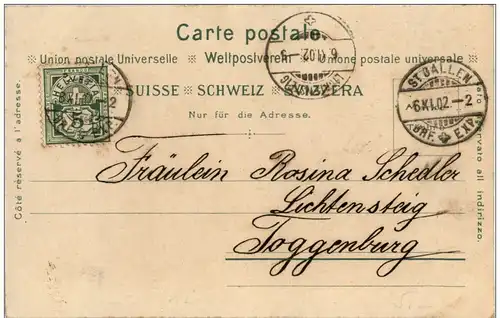 Carte postale.
Union postale Universelle Weltpostverein Unione postale universale
SUISSE SCHWEIZ SVIZZERA
Nur für die Adresse.
Côté réservé à l'adresse.
HELVETIA
FRANCO
5
6.XI.02.—5
LICHTENSTEIG
ST. GALLEN
6.XI.02.—2
BRF. EXP.
Fräulein Rosina Schedler
Lichtensteig
Toggenburg
riservato all indirizzo.